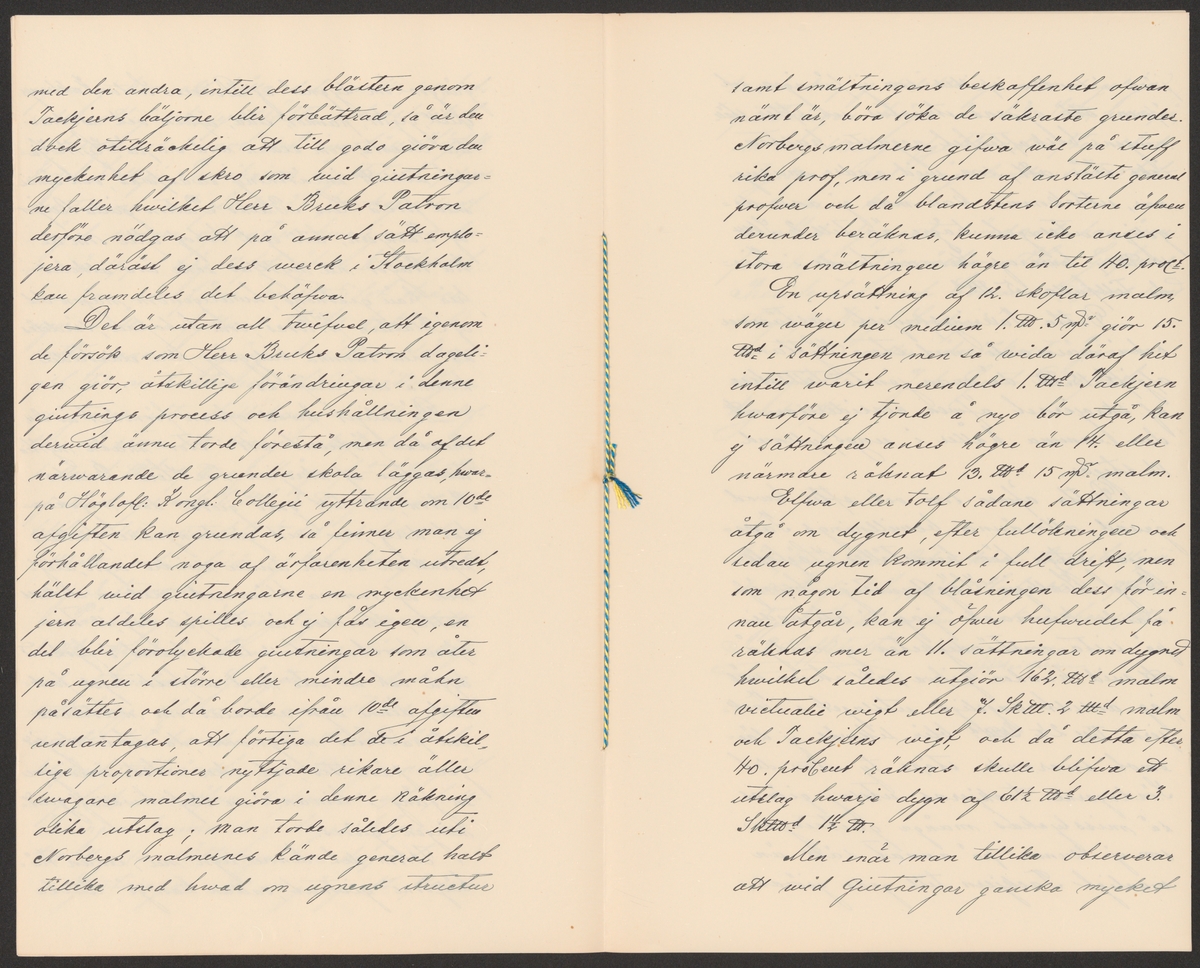 med den andra, intill dess blästern genom
Tackjerns bäljorne blir förbättrad, så är den
dock otillräckelig att till godo giöra den
myckenhet af skro som wid giutningar-
ne faller hwilket Herr Bruks Patron
derföre nödgas att på annat sätt emplo-
jera, däräst ej dess werck i Stockholm
kan framdeles det behöfwa.
Det är utan all twifvel, att igenom
de försök som Herr Bruks Patron dageli-
gen giör, åtskillige förändringar i denne
giutnings process och hushållningen
derwid ännu torde förestå, men då af det
närwarande de grunder skola läggas, hwar-
på Höglofl: Kongl. Collegii yttrande om 10de
afgiften kan grundas, så finner man ej
förhållandet noga af ärfarenheten utredt,
hälst wid giutningarne en myckenhet
jern aldeles spilles och ej fås igen, en
del blir förolyckade giutningar som åter
på ugnen i större eller mindre måhn
påsättes och då borde ifrån 10de afgiften
undantagas, att förtiga det de i åtskil-
lige proportioner nyttjade rikare äller
swagare malmer giöra i denne räkning
olika utslag; man torde således uti
Norbergs malmernes kände general halt
tillika med hwad om ugnens structur
samt smältningens beskaffenhet ofwan
nämt är, böra söka de säkraste grunder.
Norbergs malmerne gifwa wäl på stuff
rika prof, men i grund af anstälte general
profwer och då blandstens sorterne äfwen
derunder beräknas, kunna icke anses i
stora smältningen högre än til 40. proCt.
En upsättning af 12. skoflar malm,
som wäger per medium 1. ℔. 5 m℔ giör 15.
℔d i sättningen men så wida däraf hit
intill warit merendels 1. ℔d Tackjern
hwarföre ej tjonde å nyo bör utgå, kan
ej sättningen anses högre än 14. eller
närmdre räknat 13. ℔d 15 m℔. malm.
Elfwa eller tolf sådane sättningar
åtgå om dygnet, efter fullökningen och
sedan ugnen kommit i full drift, men
som någon tid af blåsningen dess för in-
nan åtgår, kan ej öfwer hufwudet få
räknas mer än 11. sättningar om dygnet
hwilket således utgiör 162. ℔d malm
victualie wigt eller 7. Sk℔. 2 ℔d malm
och Tackjerns wigt, och då detta efter
40. proCent räknas skulle blifwa ett
utslag hwarje dygn af 61½ ℔d eller 3.
Sk℔d 1½ ℔.
Men enär man tillika observerar
att wid Giutningar ganska mycket